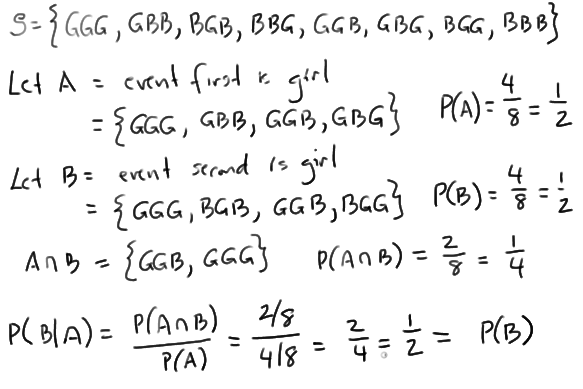 S = {GGG, GBB, BGB, BBG, GGB, GBG, BGG, BBB}
Let A = event first is girl
= {GGG, GBB, GGB, GBG} P(A) = 4/8 = 1/2
Let B = event second is girl
= {GGG, BGB, GGB, BGG} P(B) = 4/8 = 1/2
A∩B = {GGB, GGG} P(A∩B) = 2/8 = 1/4
P(B|A) = P(A∩B)/P(A) = (2/8)/(4/8) = 2/4 = 1/2 = P(B)